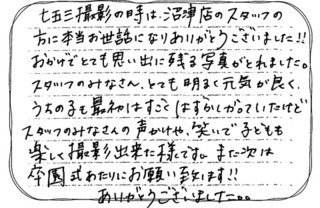 七五三撮影の時は、沼津店のスタッフの
方に本当お世話になりありがとうございました!!
おかげでとても思い出に残る写真がとれました。
スタッフのみなさん、とても明るく元気が良く、
うちの子も最初はすごくはずかしがっていたけど
スタッフのみなさんの声かけや、笑いで子どもも
楽しく撮影出来た様です。また次は
卒園式あたりにお願い致します!!
ありがとうございました。。